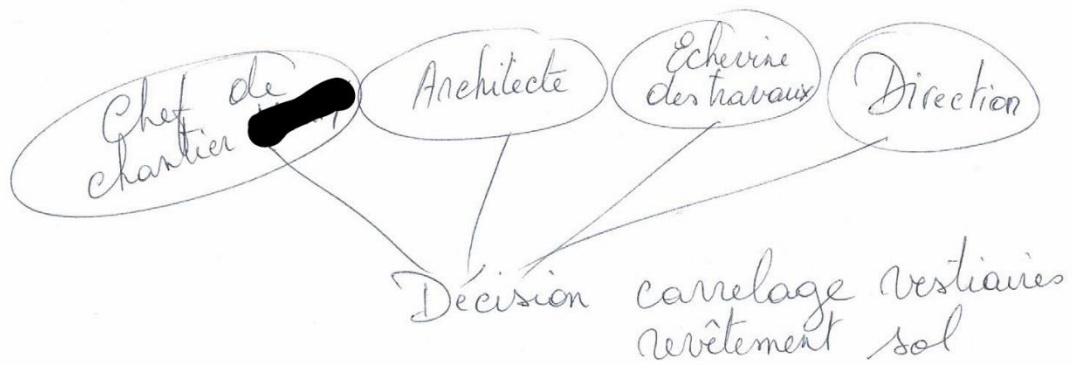 Chef de
chantier
Architecte
Echevine
des travaux
Direction
Décision carrelage vestiaires
revêtement sol